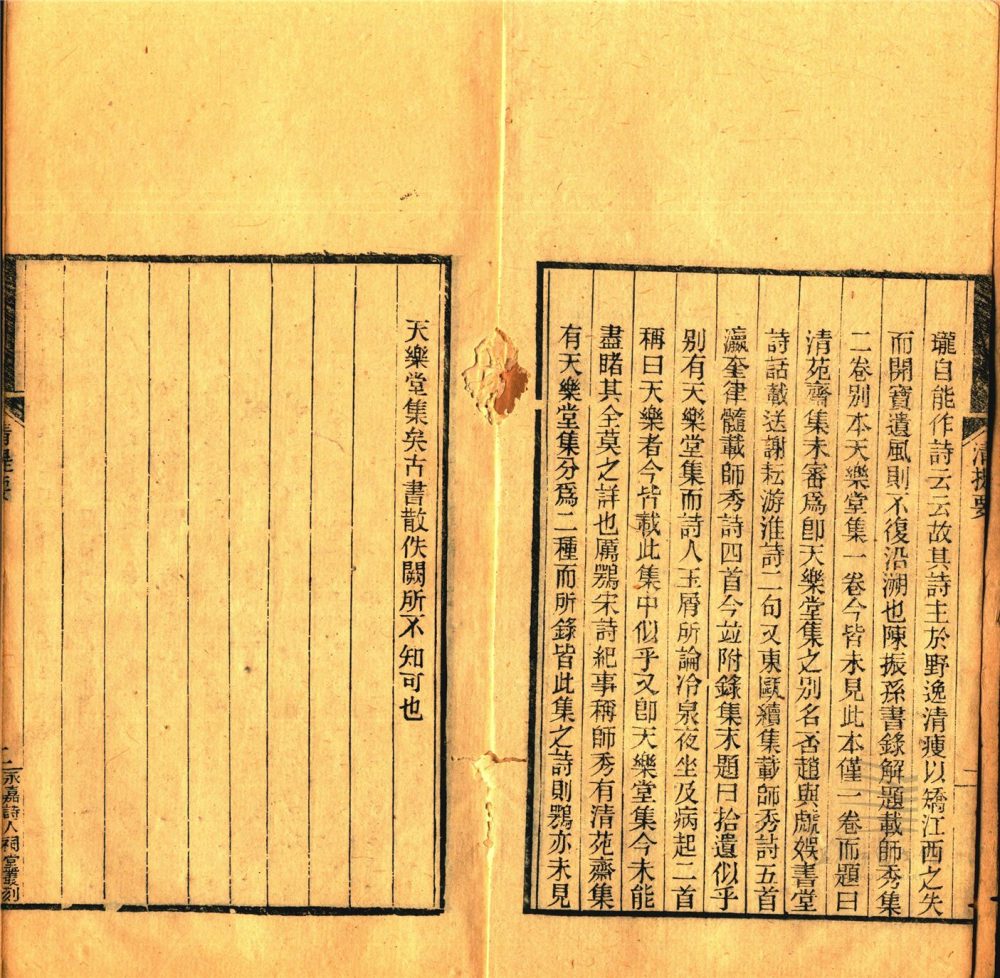 瓏自能作詩云云故其詩主於野逸清瘦以矯江西之失
而開寶遺風則不復沿溯也陳振孫書錄解題載師秀集
二卷别本天樂堂集一卷今皆未見此本僅一卷而題曰
清苑齋集未審爲卽天樂堂集之别名否趙與虤娛書堂
詩話載送謝耘游淮詩二句又東甌續集載師秀詩五首
瀛奎律髓載師秀詩四首今竝附錄集末題曰拾遺似乎
别有天樂堂集而詩人玉屑所論冷泉夜坐及病起二首
稱曰天樂者今皆載此集中似乎又卽天樂堂集今未能
盡睹其全莫之詳也厲鶚宋詩紀事稱師秀有清苑齋集
有天樂堂集分爲二種而所錄皆此集之詩則鶚亦未見
天樂堂集矣古書散佚闕所不知可也
清提要
二
永嘉詩人祠堂叢刻